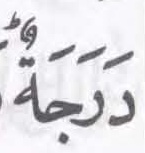 دَرَجَةٌ